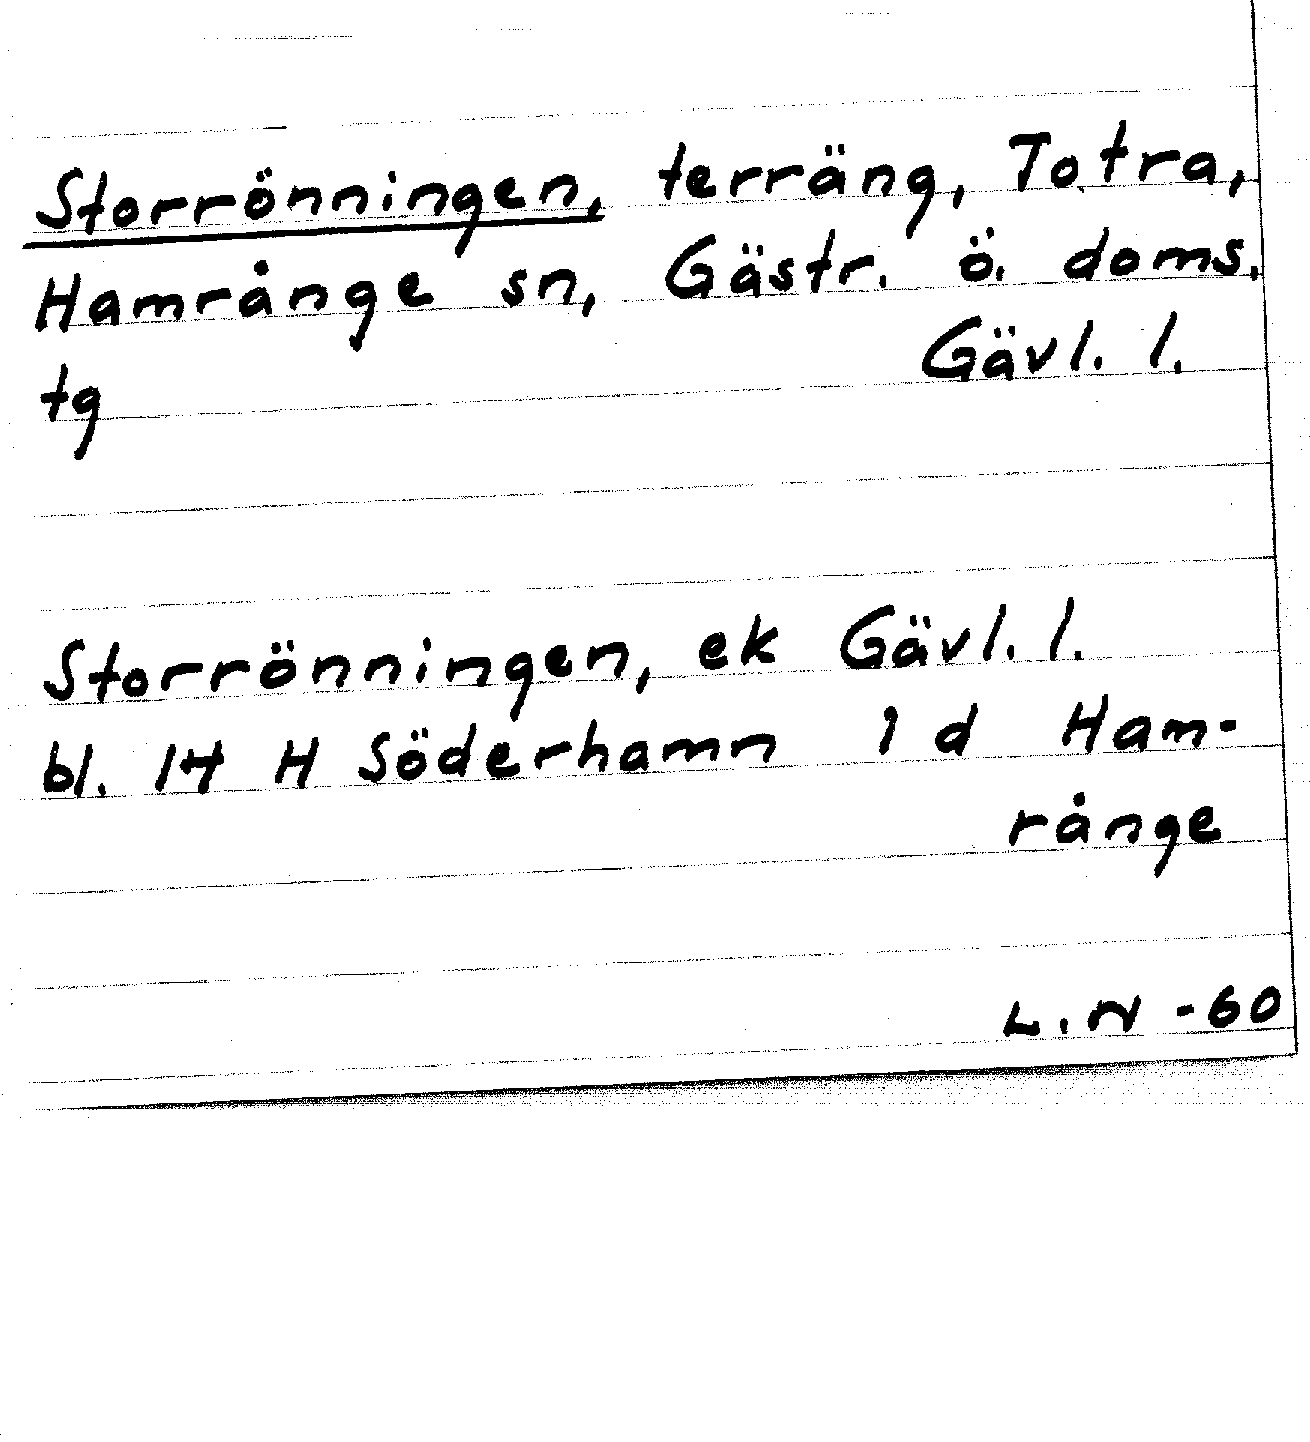 Storrönningen, terräng, Totra,
Hamrånge sn, Gästr. ö. doms.
tg Gävl. l.
Storrönningen, ek Gävl. l.
bl. 14 H Söderhamn 1 d Ham-
rånge
L.N -60